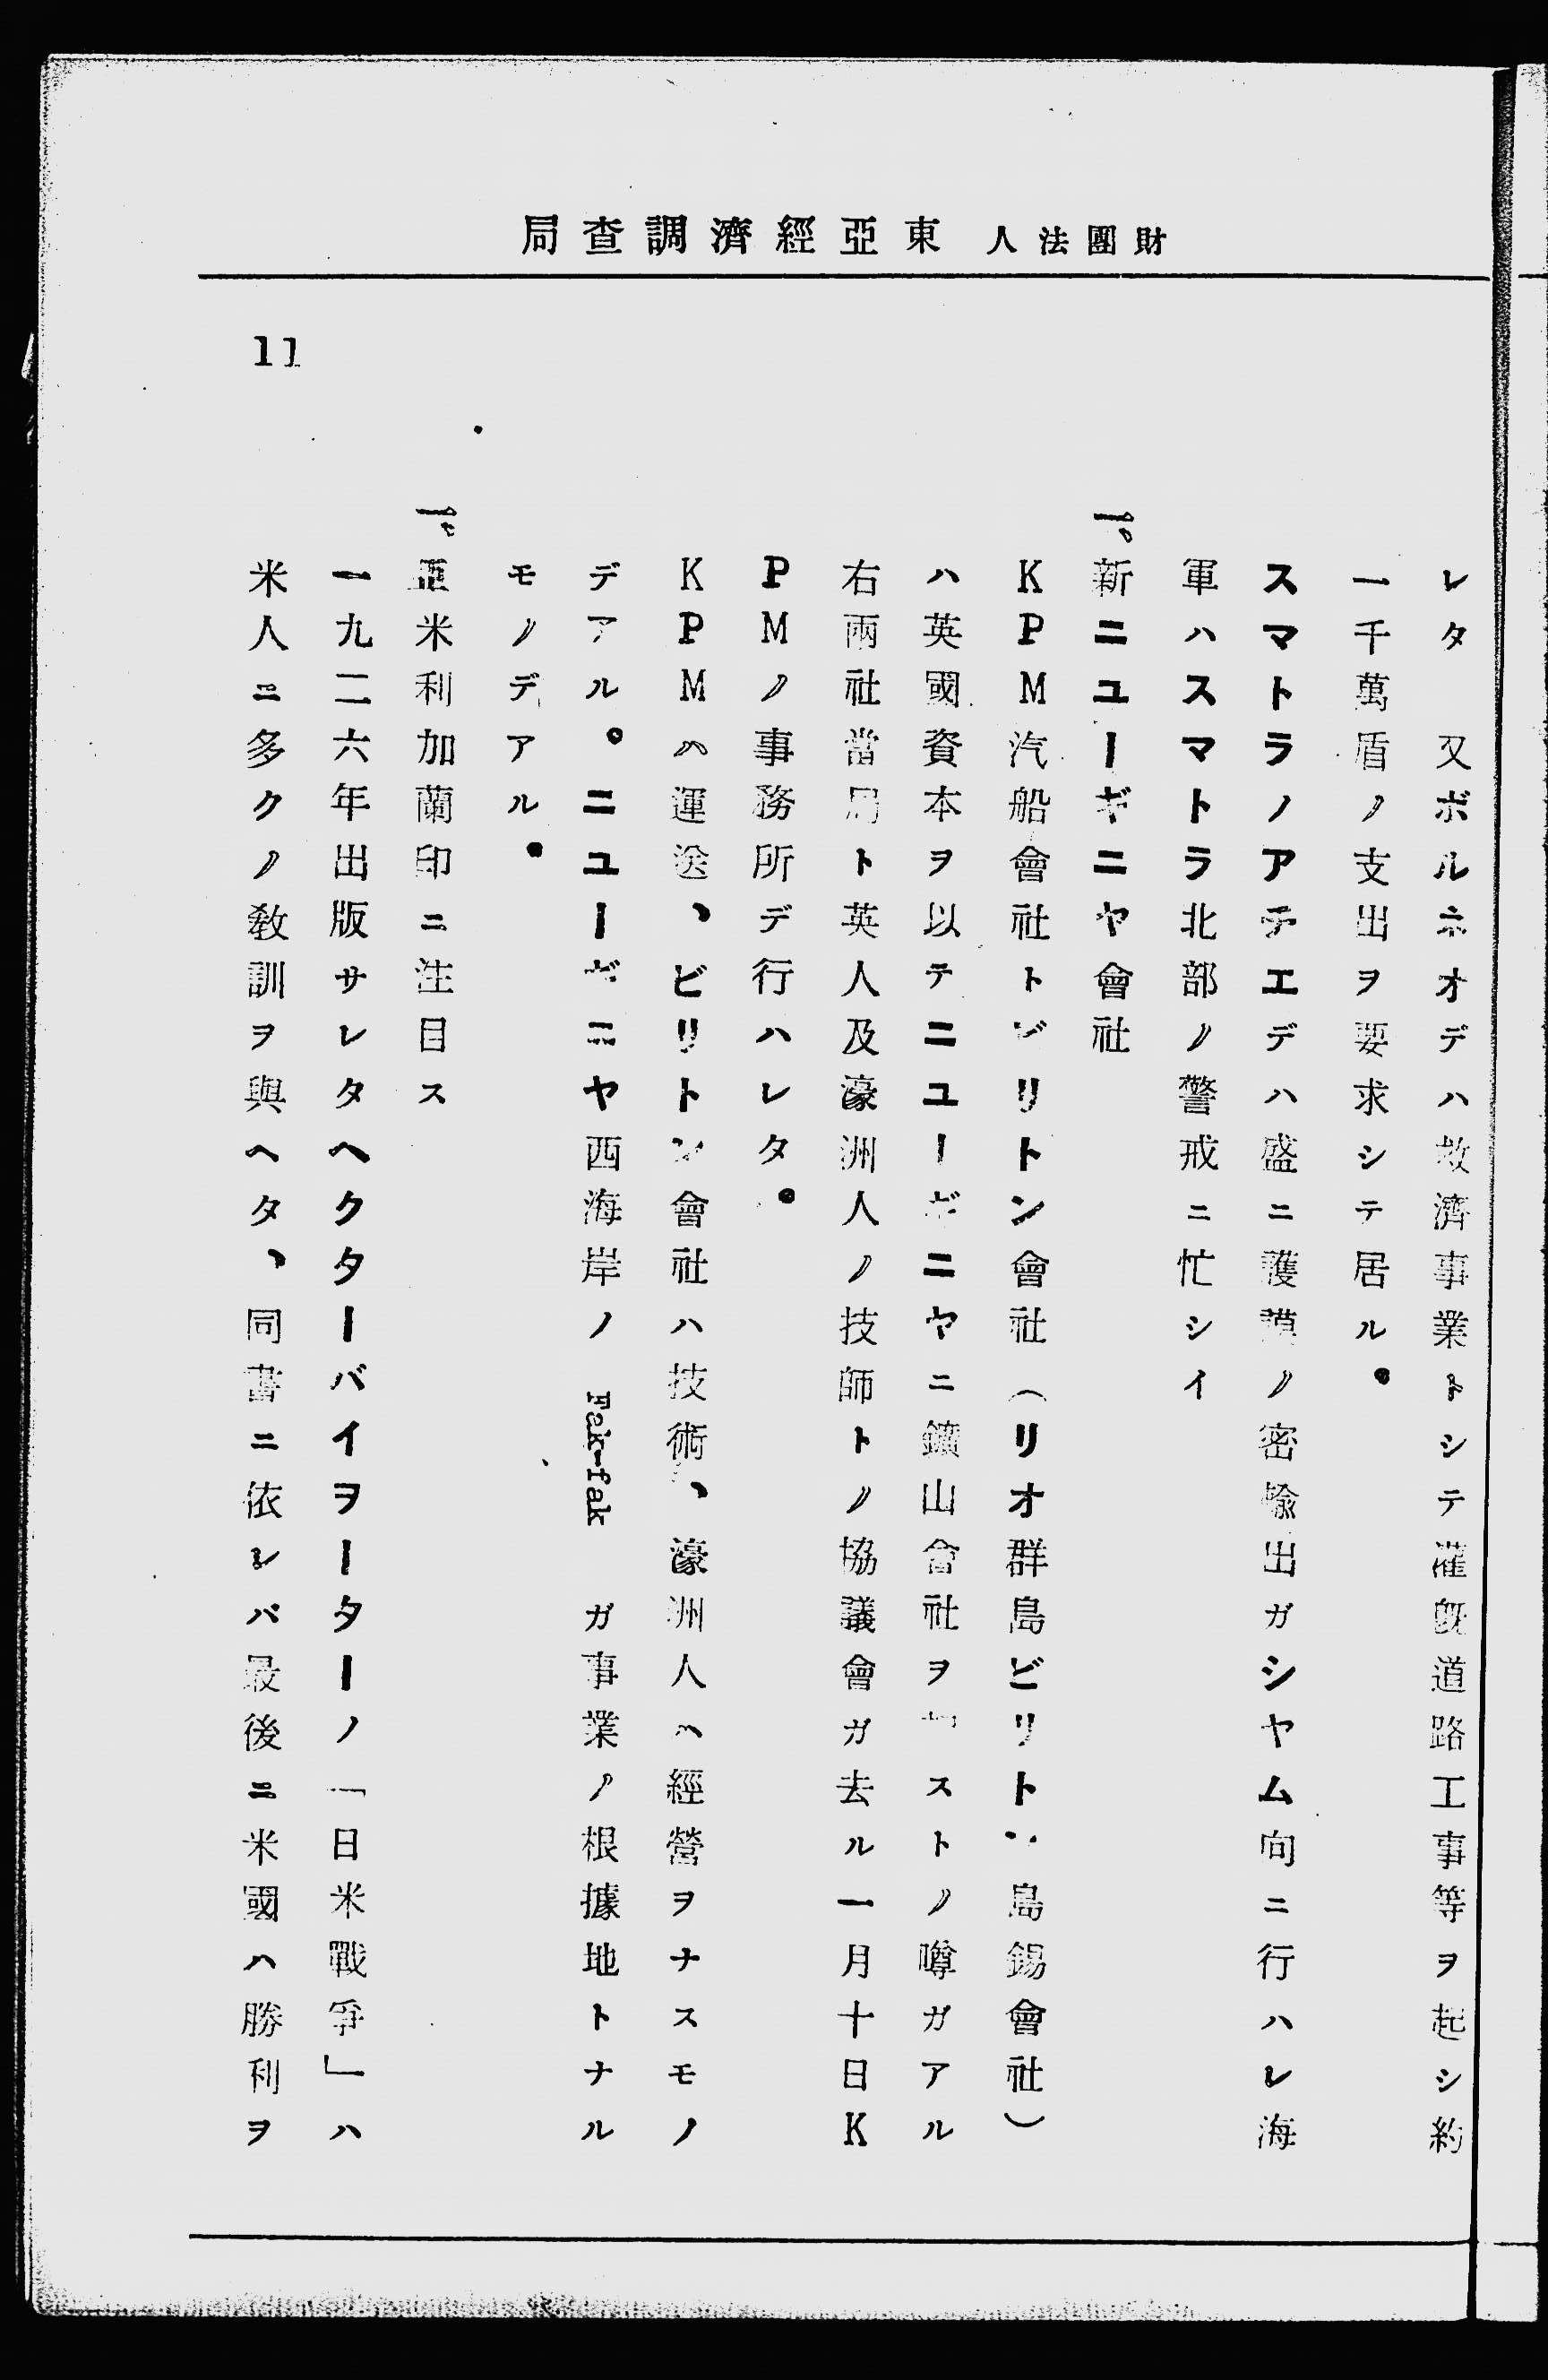 財團法人 東亞經濟調査局
11
レタ 又ボルネオデハ救濟事業トシテ灌漑道路工事等ヲ起シ約
一千萬盾ノ支出ヲ要求シテ居ル。
スマトラノアチエデハ盛ニ護謨ノ密輸出ガシヤム向ニ行ハレ海
軍ハスマトラ北部ノ警戒ニ忙シイ
一。新ニユーギニヤ會社
KPM汽船會社トビリトン會社(リオ群島ビリトン島錫會社)
ハ英國資本ヲ以テニユーギニヤニ鑛山會社ヲ ストノ噂ガアル
右兩社當局ト英人及濠洲人ノ技師トノ協議會ガ去ル一月十日K
PMノ事務所デ行ハレタ。
KPMハ運送、ビリトン會社ハ技術、濠洲人ハ經營ヲナスモノ
デアル。ニユーギニヤ西海岸ノ Fak-fak ガ事業ノ根據地トナル
モノデアル。
一、亞米利加蘭印ニ注目ス
一九二六年出版サレタヘクターバイヲーターノ「日米戰爭」ハ
米人ニ多クノ敎訓ヲ與ヘタ、同書ニ依レバ最後ニ米國ハ勝利ヲ